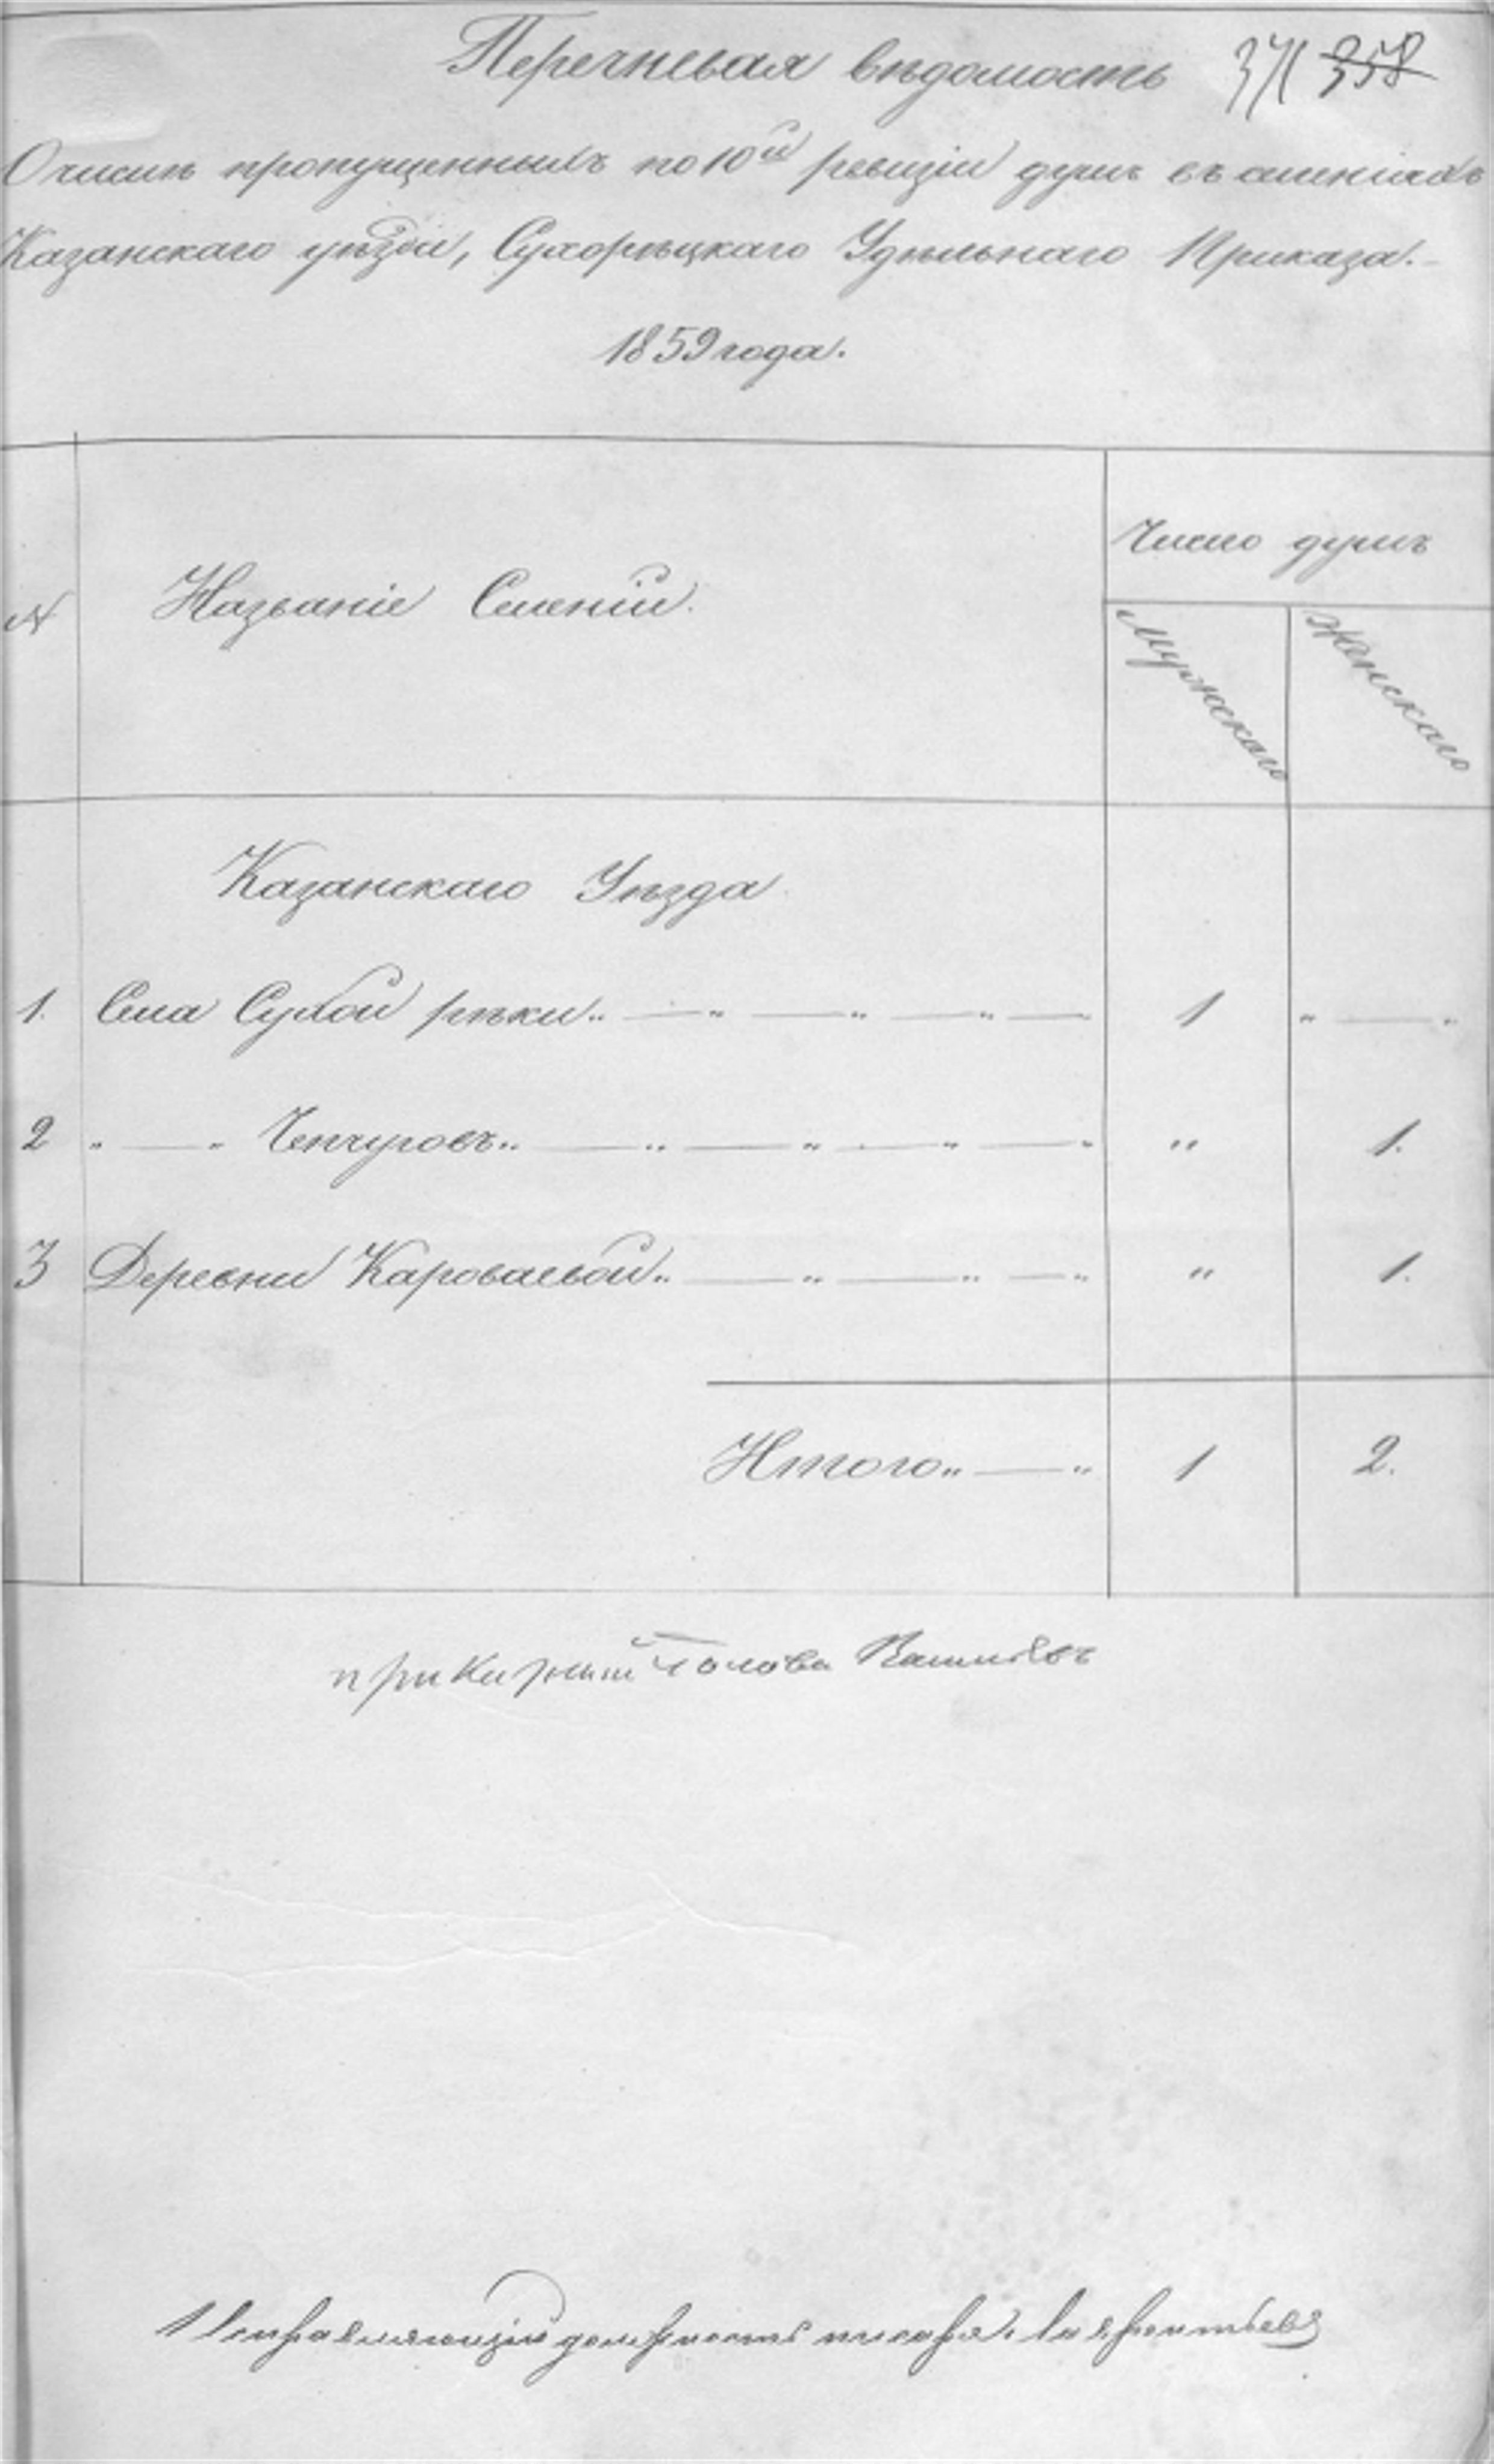 Перечневая вѣдомость 371 358
О числѣ пропущенныхъ по 10й ревизіи душъ въ селеніяхъ
Казанскаго уѣзда, Сухорѣцкаго Удѣльнаго Приказа.
1859 года.
№ Названіе Селеній. Число душъ
Мужскаго Женскаго
Казанскаго Уѣзда
1. Села Сухой рѣки „ — „ — „ — „ — „ 1 „ — „
2 „ — „ Чепчуговъ „ — „ — „ — „ — „ „ 1.
3 Деревни Караваевой „ — „ — „ — „ „ 1.
Итого „ — „ 1 2.
приказный голова
Исправляющій должность писаря Лаврентьевъ